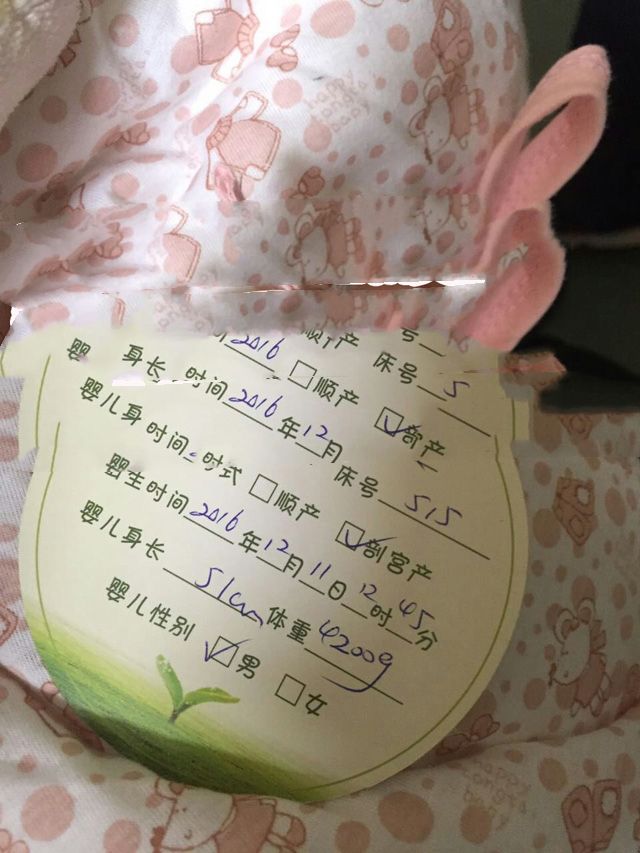 2016 顺产 床号
婴 身长 时间2016 顺产 床号 5
婴儿身时间 2016年12月 剖产
时间 时式 顺产 床号 515
婴生时间 2016年12月11日12时45分 剖宫产
婴儿身长 51cm 体重 4200g
婴儿性别 男 女